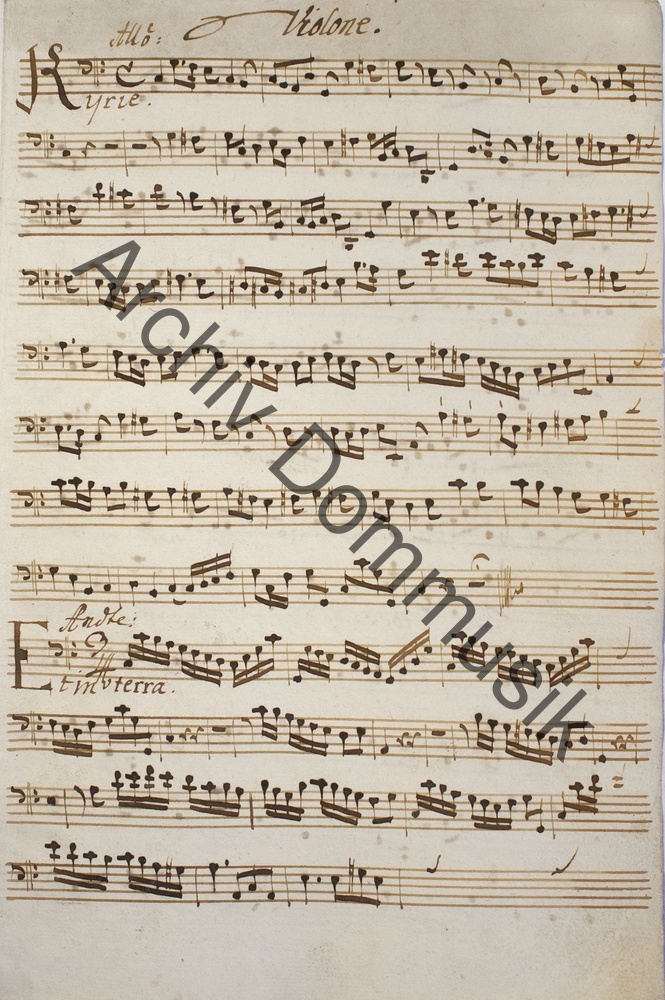 Violone.
All:o
Kyrie.
And:te
Et in terra.
Archiv Dommusik